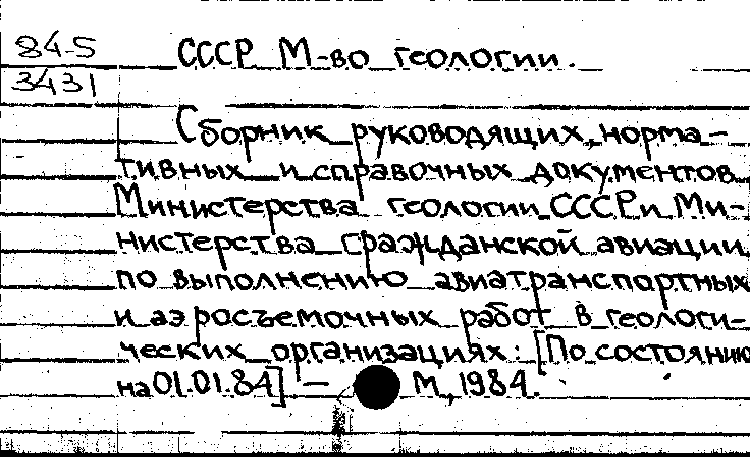 84-5
3431
СССР М-во геологии.
Сборник руководящих, норма-
тивных и справочных документов
Министерства геологии СССР и Ми-
нистерства гражданской авиации
по выполнению авиатранспортных
и аэросъемочных работ в геологи-
ческих организациях: [По состоянию
на 01.01.84] — М, 1984.